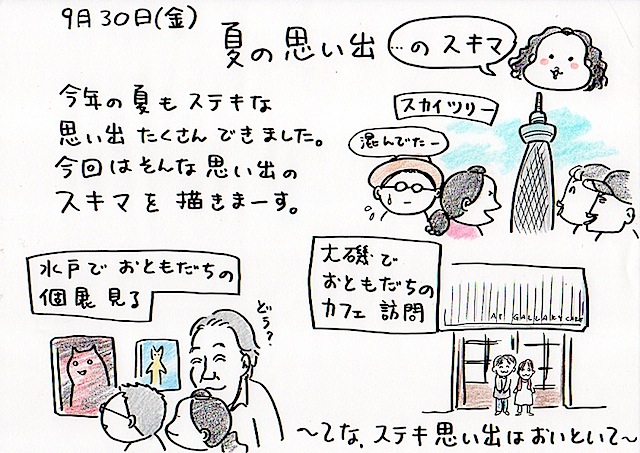 9月30日(金)
夏の思い出
…のスキマ
今年の夏もステキな
思い出たくさんできました。
今回はそんな思い出の
スキマを描きまーす。
スカイツリー
混んでたー
水戸でおともだちの
個展見る
どう?
大磯で
おともだちの
カフェ訪問
ART GALLARY CAFE
〜てな、ステキ思い出はおいといて〜